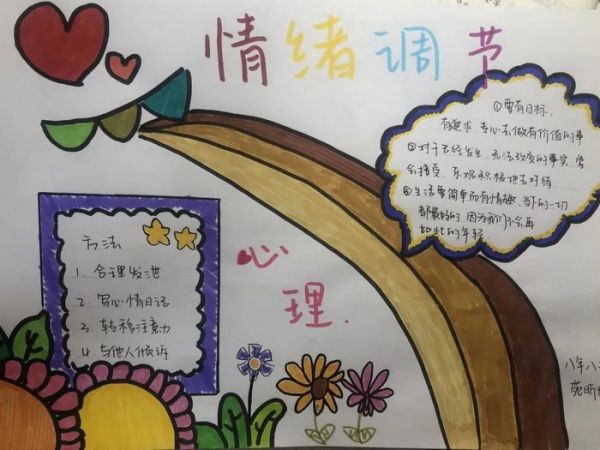 情绪调节
①要有目标、
有追求、专心去做有价值的事
②对于已经发生、无法改变的事实、学
会接受、乐观积极地去对待、
③生活要简单而有情趣、当下的一切
都是最好的、因为我们不会再
如此的年轻
方法
1. 合理发泄
2. 写心情日记
3. 转移注意力
4. 与他人倾诉
心
理.
八年八